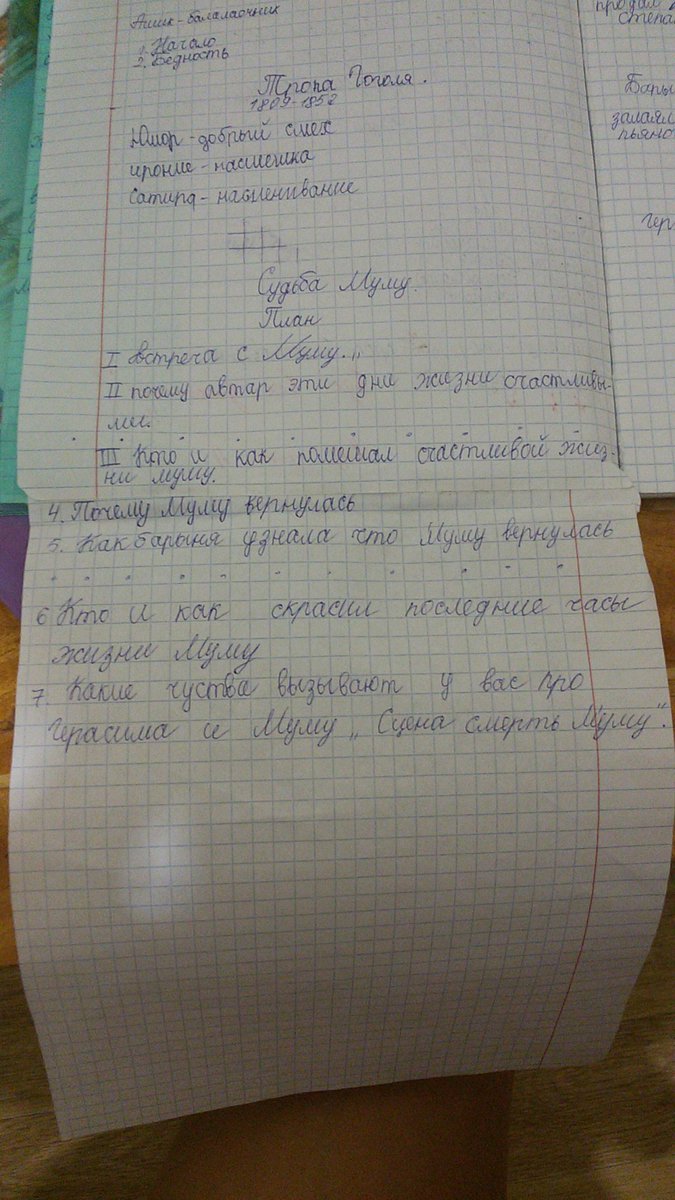 Ашик-балалаочник
1. Начало
2. Бедность
Тропа Гоголя.
1809-1852
Юмор - добрый смех
ирония - насмешка
Сатира - насменивание
Судьба Муму.
План
I встреча с Муму."
II почему автар эти дни жизни счастливы-
ми.
III Кто и как помешал счастливой жиз-
ни муму.
4. Почему Муму вернулась
5. Как барыня узнала что Муму вернулась
6 Кто и как скрасил последние часы
жизни Муму
7. Какие чуства вызывают у вас про
Герасима и Муму „ Сцена смерть Муму".
продал
степа
Бары
залаял
пьяно
гер